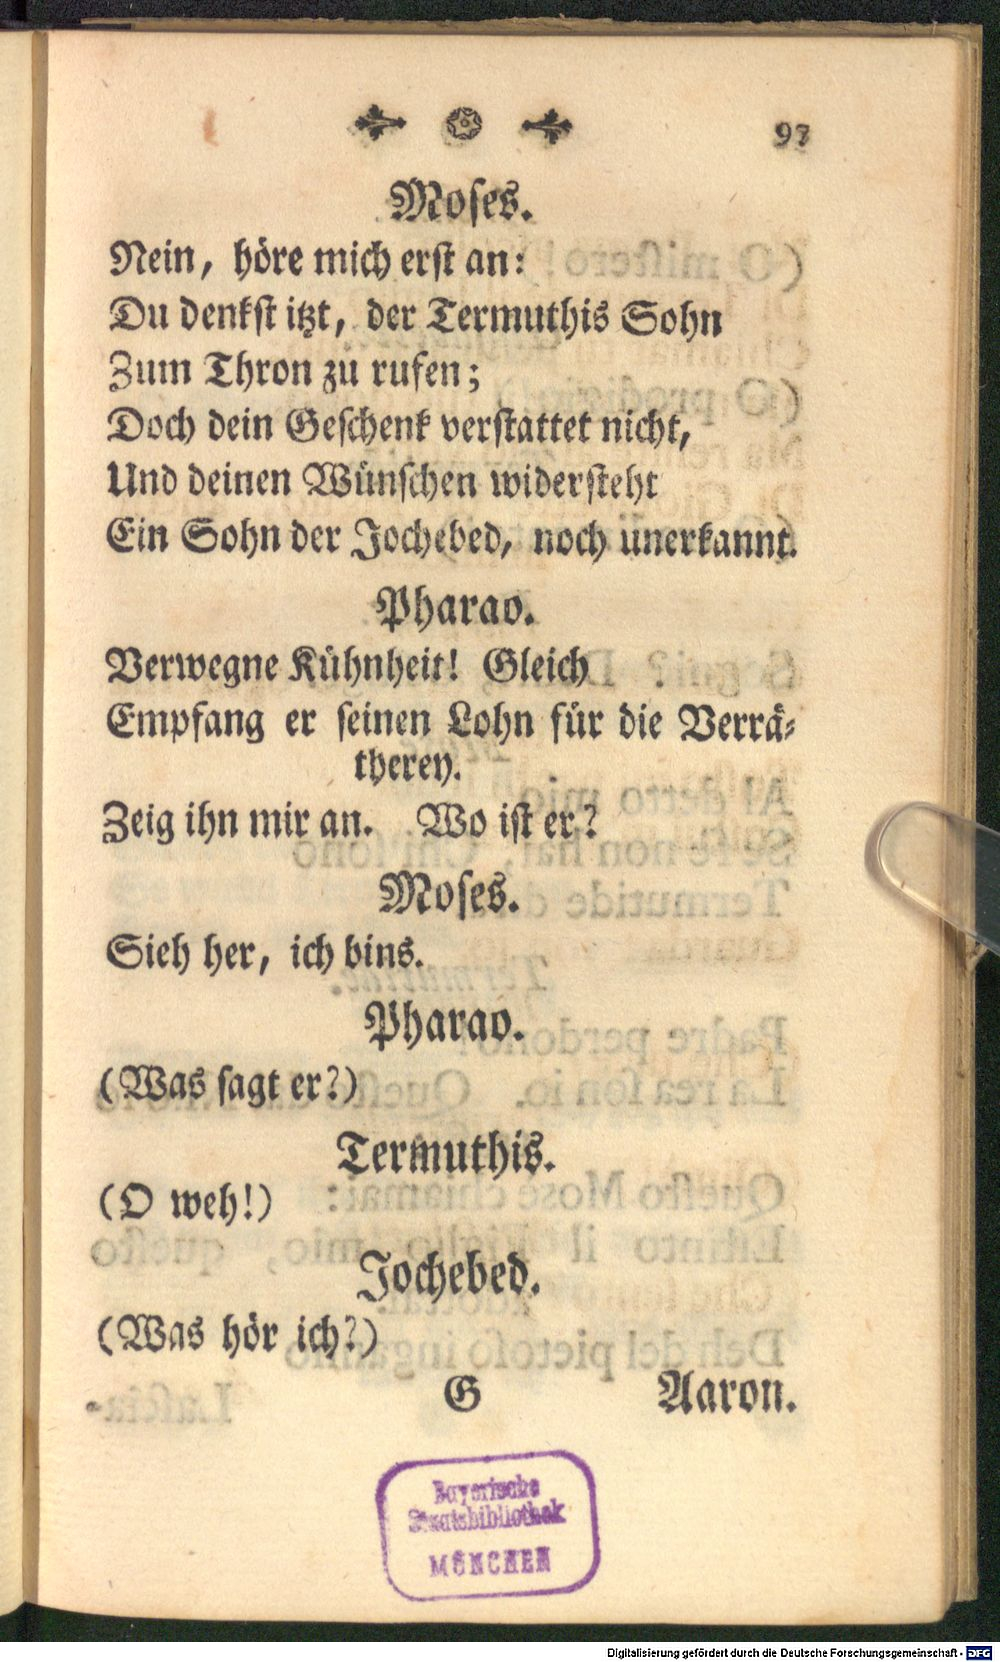 97
Moses.
Nein, höre mich erst an:
Du denkst itzt, der Termuthis Sohn
Zum Thron zu rufen;
Doch dein Geschenk verstattet nicht,
Und deinen Wünschen widersteht
Ein Sohn der Jochebed, noch unerkannt.
Pharao.
Verwegne Kühnheit! Gleich
Empfang er seinen Lohn für die Verrä-
therey.
Zeig ihn mir an. Wo ist er?
Moses.
Sieh her, ich bins.
Pharao.
(Was sagt er?)
Termuthis.
(O weh!)
Jochebed.
(Was hör ich?)
G Aaron.
Bayerische
Staatsbibliothek
MÜNCHEN
Digitalisierung gefördert durch die Deutsche Forschungsgemeinschaft - DFG